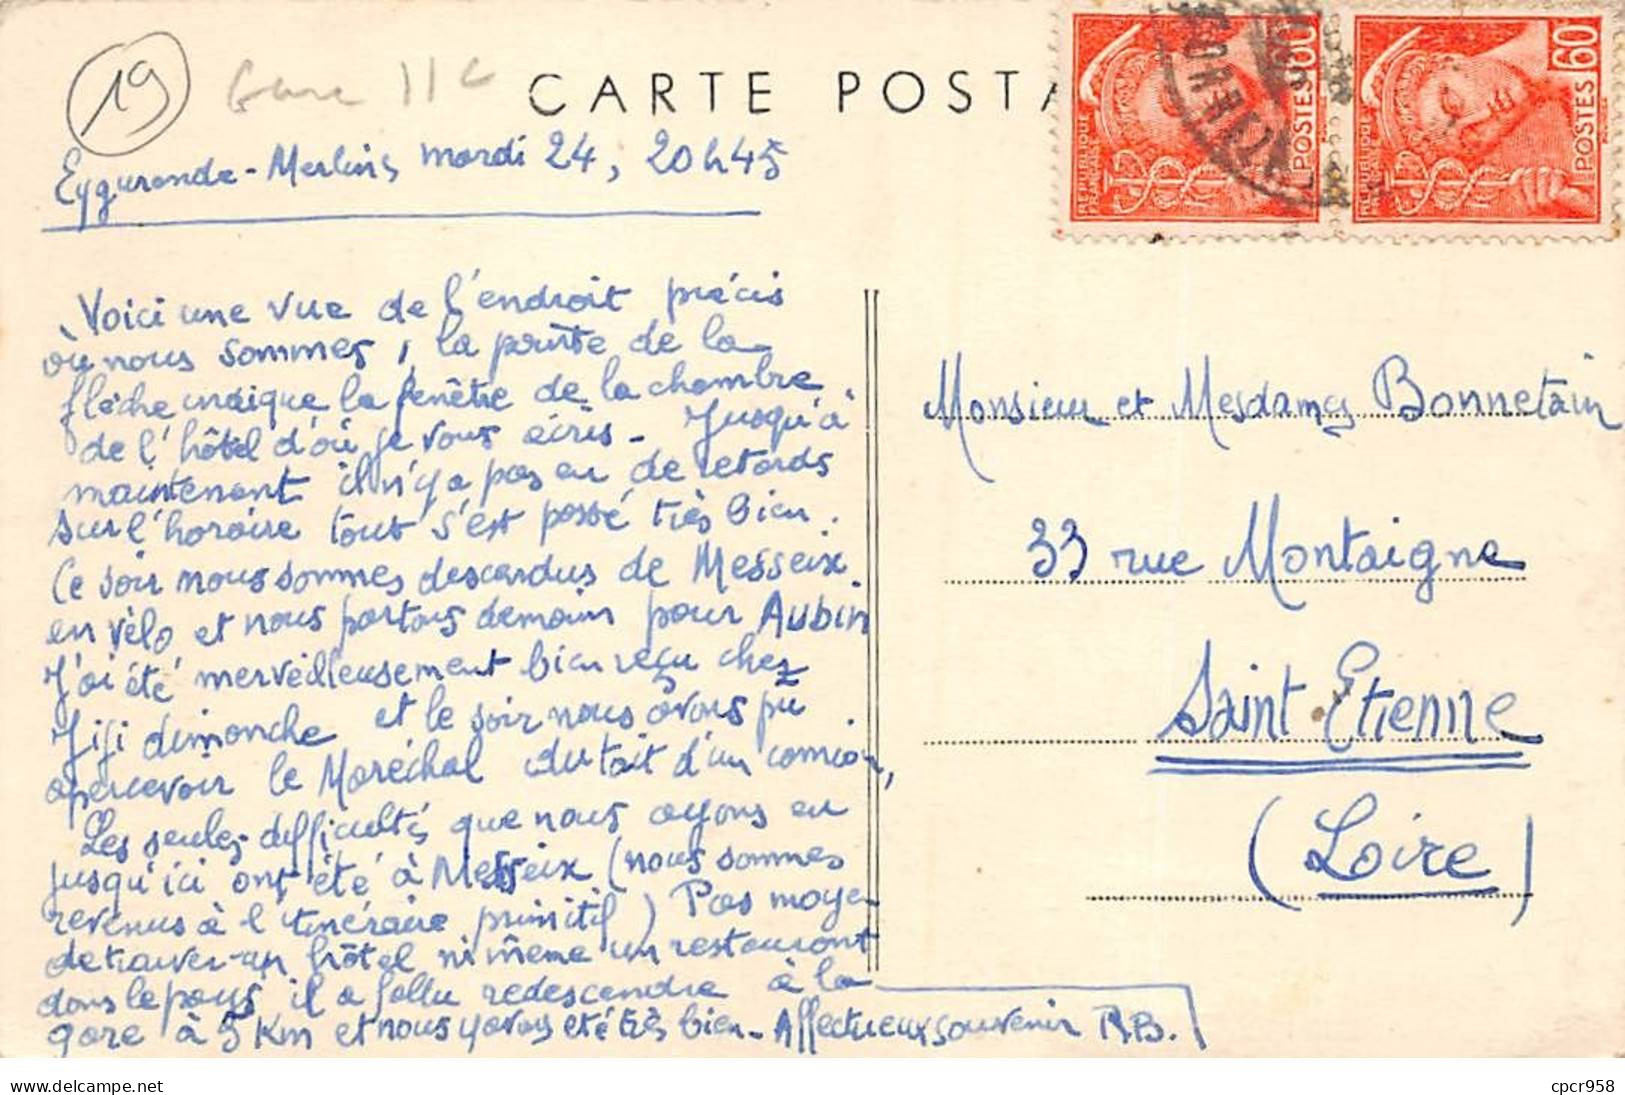 19
Gare 11c
CARTE POSTA
Eygurande-Merlines mardi 24, 20h45
60
POSTES
REPUBLIQUE FRANCAISE
60
POSTES
Voici une vue de l'endroit précis
où nous sommes, la pointe de la
flèche indique la fenêtre de la chambre
de l'hôtel d'où je vous écris - Jusqu'à
maintenant il n'y a pas eu de retards
sur l'horaire tout s'est passé très bien.
Ce soir nous sommes descendus de Messeix
en vélo et nous partons demain pour Aubin
J'ai été merveilleusement bien reçu chez
Fifi dimanche et le soir nous avons pu
apercevoir le Maréchal du toit d'un camion,
Les seules difficultés que nous ayons eu
jusqu'ici ont été à Messeix (nous sommes
revenus à l'itinéraire primitif) Pas moyen
de trouver un hôtel ni même un restaurant
dans le pays il a fallu redescendre à la
gare à 5 Km et nous y avons été très bien - Affectueux souvenir R.B.
Monsieur et Mesdames Bonnetain
33 rue Montaigne
Saint Etienne
(Loire)
delcampe.net
cpcr958